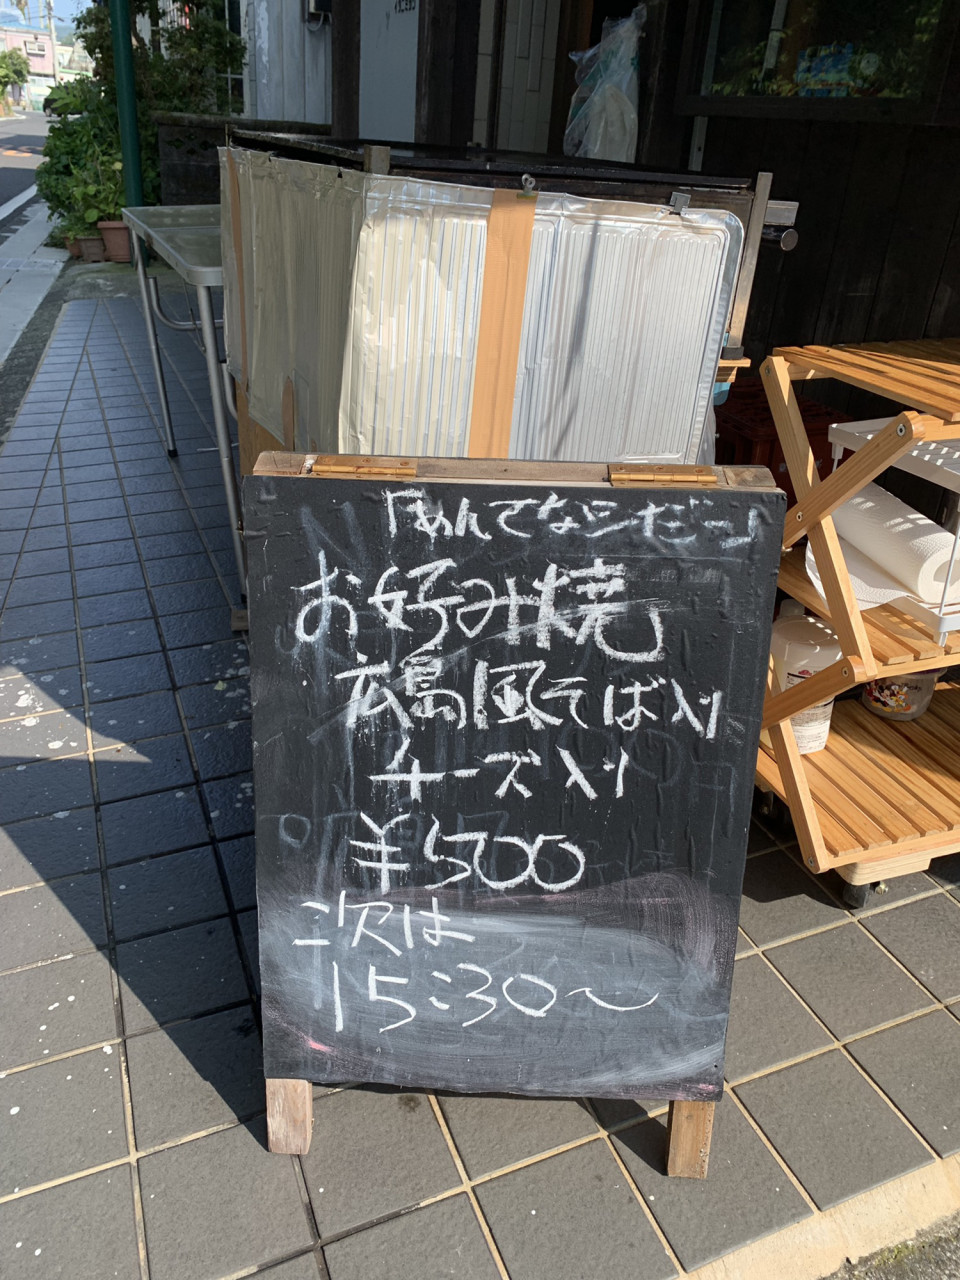 「めんてなシだー」
お好み焼
広島風そば入り
チーズ入り
¥500
次は
15:30〜